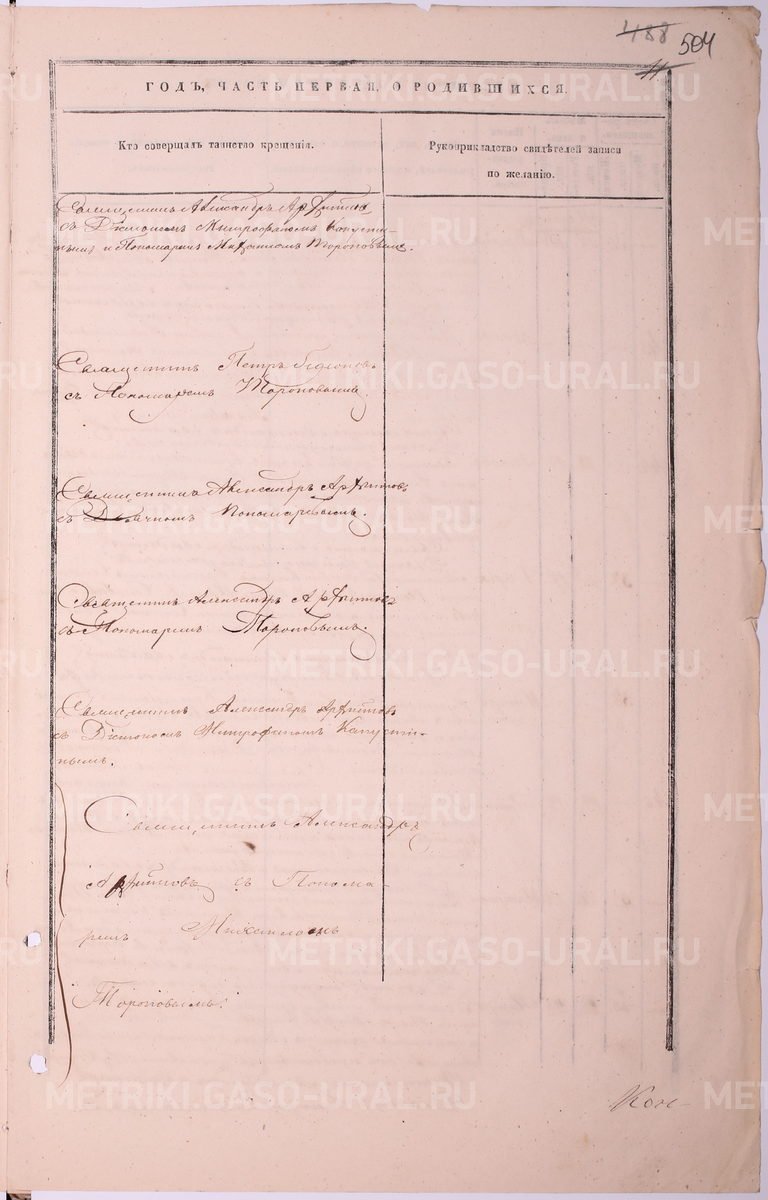 488
504
11
ГОДЪ, ЧАСТЬ ПЕРВАЯ, О РОДИВШИХСЯ.
Кто совершалъ таинство крещенія.
Рукоприкладство свидѣтелей записи
по желанію.
Священникъ Александръ
съ Діякономъ Митрофаномъ Капусти-
нымъ и Пономаремъ Михаиломъ Тороповымъ.
Священникъ Петръ
съ Пономаремъ Тороповымъ.
Священникъ Александръ
съ Пономаревымъ.
Священникъ Александръ
съ Пономаремъ Тороповымъ.
Священникъ Александръ
съ Діякономъ Митрофаномъ Капусти-
нымъ.
Священникъ Александръ
съ Понома-
ремъ Михаиломъ
Тороповымъ.
Кон
METRIKI.GASO-URAL.RU